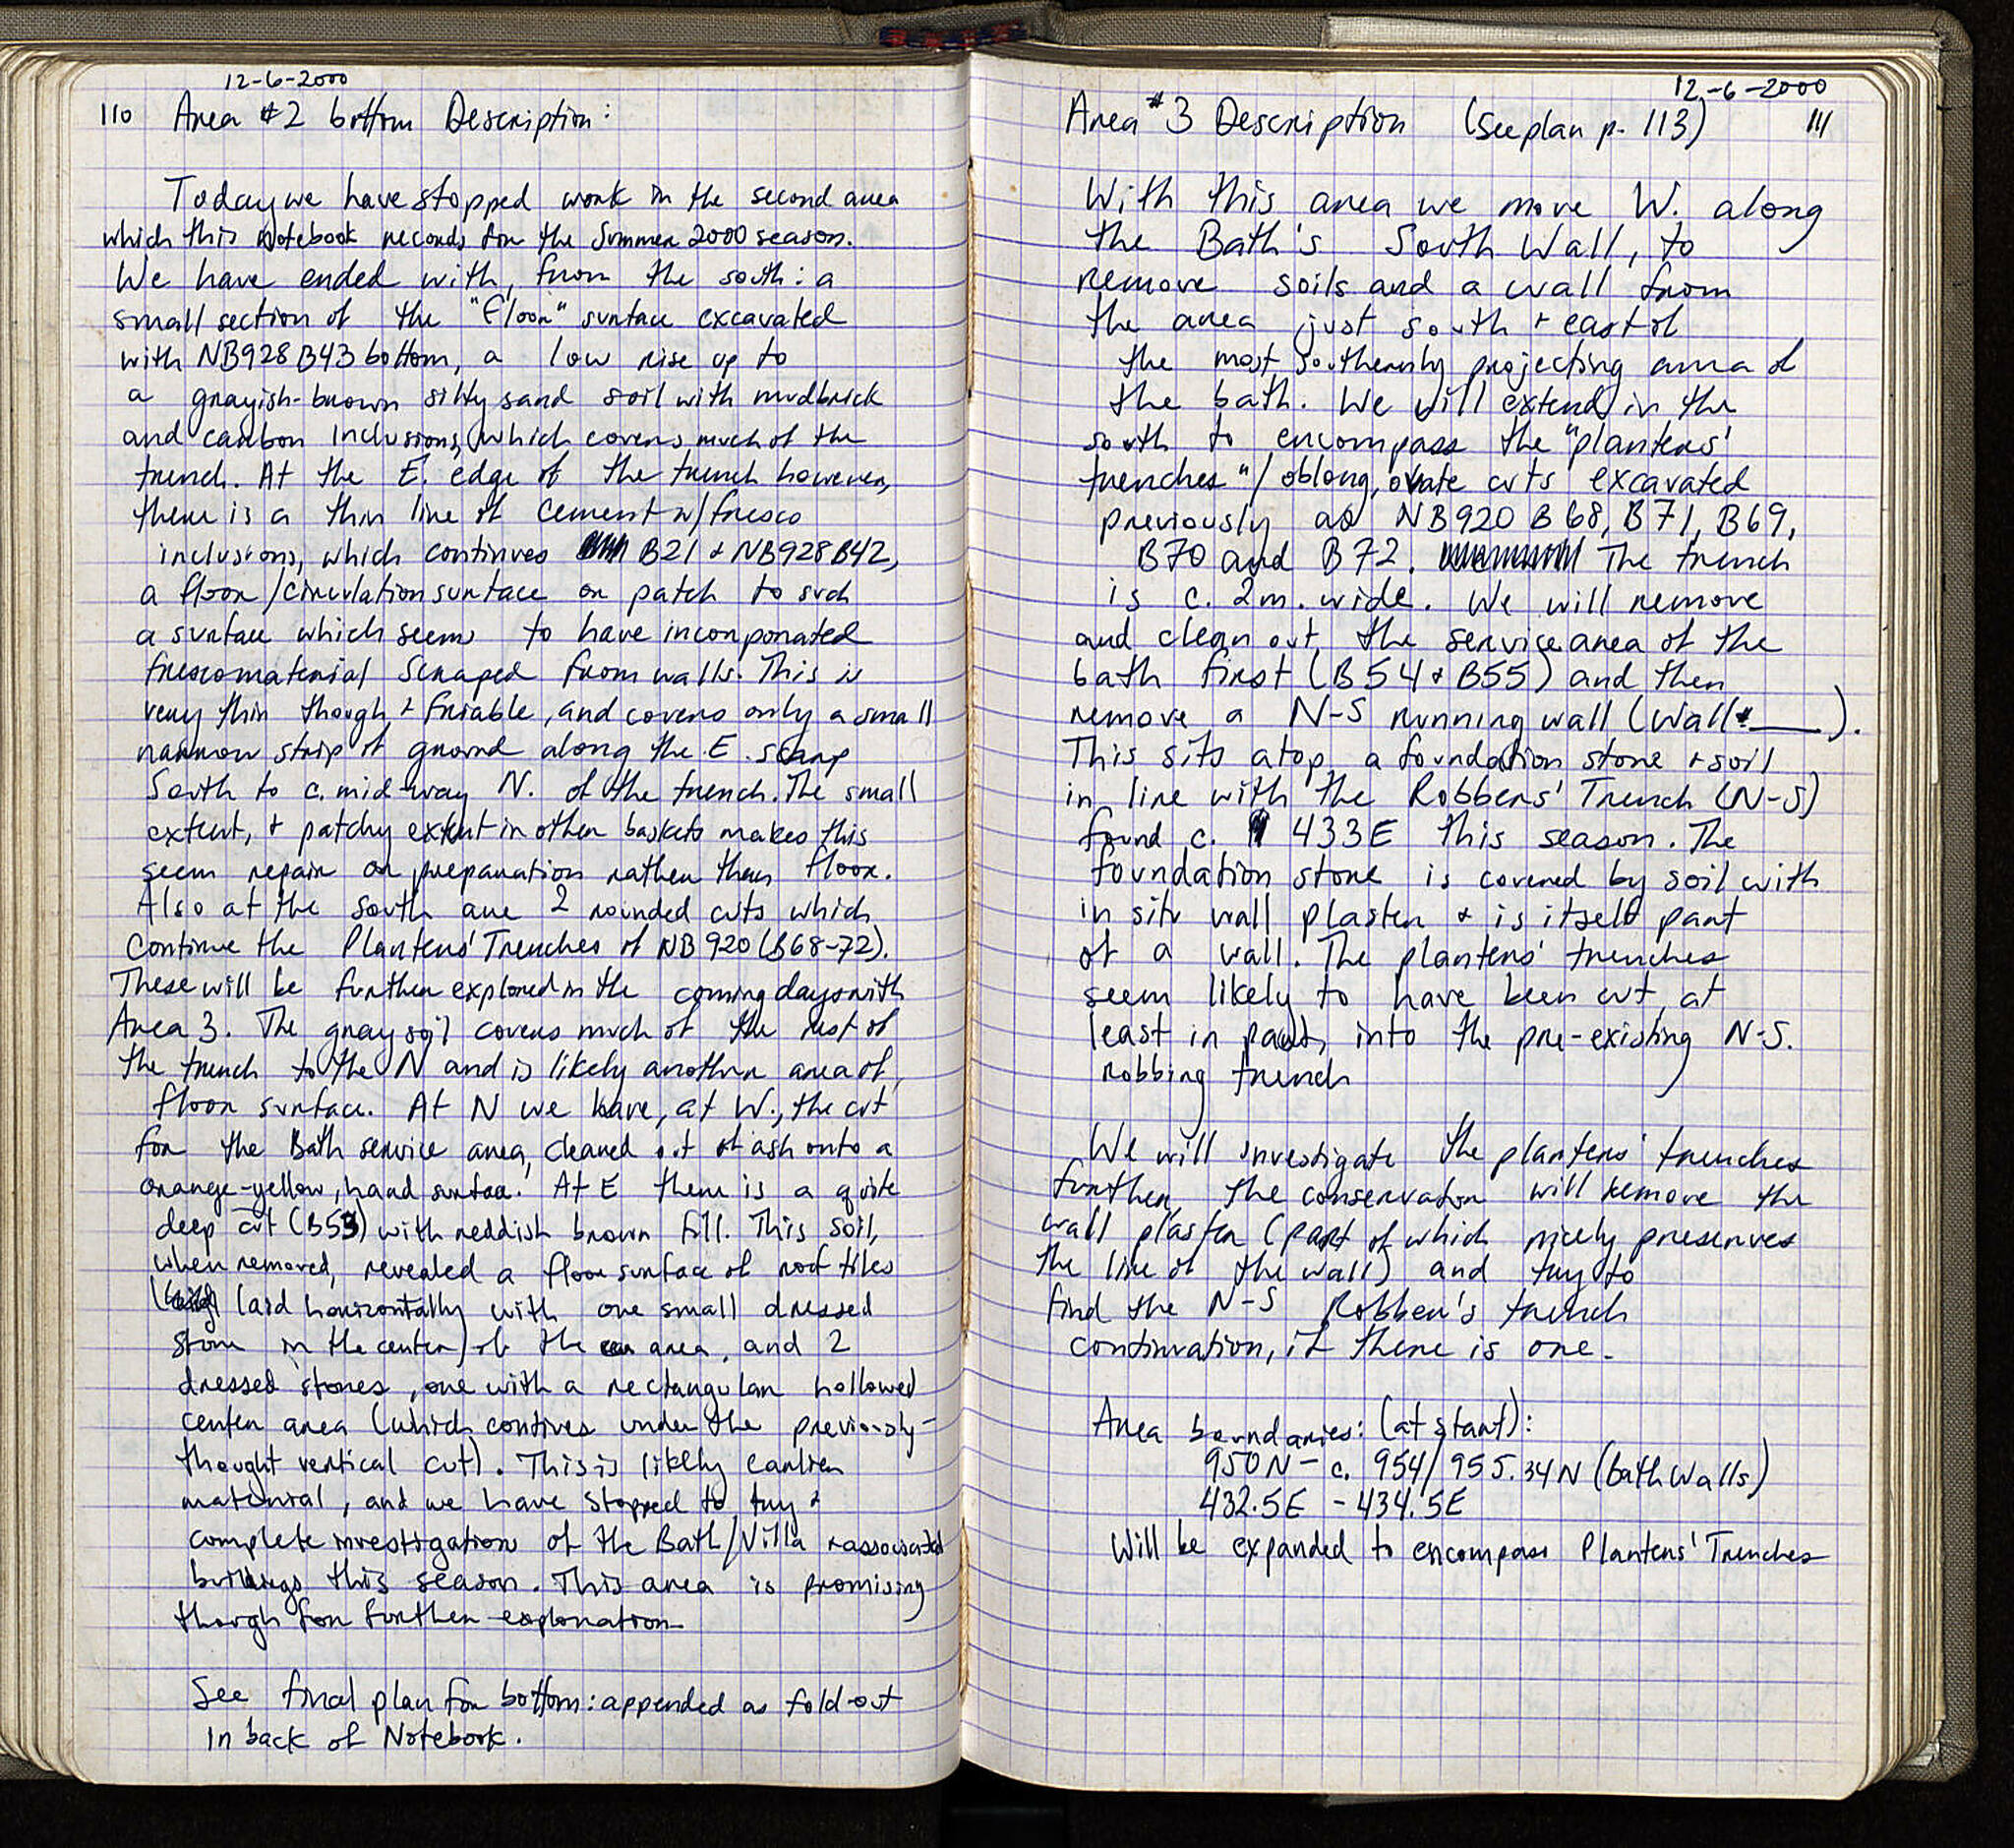 12-6-2000
110 Area #2 bottom Description:
Today we have stopped work in the second area
which this Notebook records for the Summer 2000 season.
We have ended with, from the south: a
small section of the "floor" surface excavated
with NB928 B43 bottom, a low rise up to
a grayish-brown silty sand soil with mudbrick
and carbon inclusions, which covers much of the
trench. At the E. edge of the trench however,
there is a thin line of cement w/fresco
inclusions, which continues B21 + NB928 B42,
a floor/circulation surface or patch to such
a surface which seems to have incorporated
fresco material scraped from walls. This is
very thin though + friable, and covers only a small
narrow strip of ground along the E. scarp
South to c. mid-way N. of the trench. The small
extent, + patchy extent in other baskets makes this
seem repair or preparation rather than floor.
Also at the south are 2 rounded cuts which
continue the Planters' Trenches of NB 920 (B68-72).
These will be further explored in the coming days with
Area 3. The gray soil covers much of the rest of
the trench to the N and is likely another area of
floor surface. At N we have, at W., the cut
for the Bath service area, cleaned out of ash onto a
orange-yellow, hard surface. At E there is a quite
deep cut (B53) with reddish brown fill. This soil,
when removed, revealed a floor surface of roof tiles
(laid horizontally with one small dressed
stone in the center) of the area, and 2
dressed stones, one with a rectangular hollowed
center area (which continues under the previously-
thought vertical cut). This is likely earlier
material, and we have stopped to try +
complete investigation of the Bath/Villa + associated
buildings this season. This area is promising
though for further exploration
See final plan for bottom: appended as fold-out
in back of Notebook.
12-6-2000
Area #3 Description (See plan p. 113) 111
With this area we move W. along
the Bath's South Wall, to
remove soils and a wall from
the area just south + east of
the most southernly projecting area of
the bath. We will extend in the
south to encompass the "planters'
trenches"/ oblong, ovate cuts excavated
previously as NB920 B68, B71, B69,
B70 and B72. The trench
is c. 2m. wide. We will remove
and clean out the service area of the
bath first (B54 + B55) and then
remove a N-S running wall (Wall # ____).
This sits atop a foundation stone + soil
in line with the Robbers' Trench (N-S)
found c. 433E this season. The
foundation stone is covered by soil with
in situ wall plaster + is itself part
of a wall. The planters' trenches
seem likely to have been cut, at
least in part, into the pre-existing N-S.
robbing trench
We will investigate the planters' trenches
further, the conservator will remove the
wall plaster (part of which nicely preserves
the line of the wall) and try to
find the N-S Robber's trench
continuation, if there is one.
Area boundaries: (at start):
950N - c. 954/955.34N (bath walls)
432.5E - 434.5E
Will be expanded to encompass Planters' Trenches